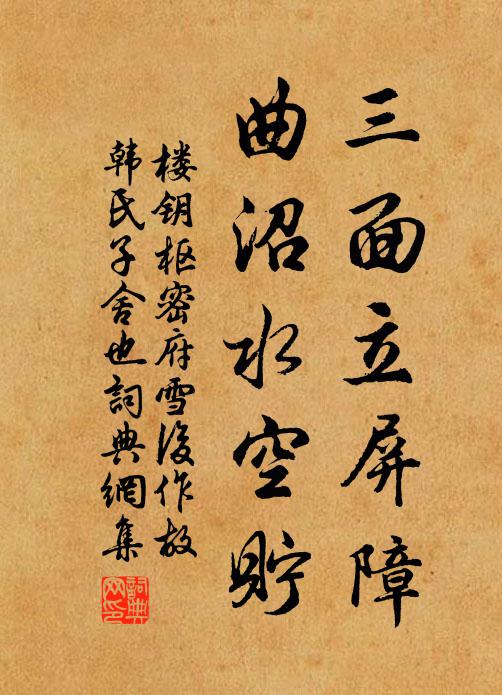 三面立屏障
曲沼水空貯
楼钥枢密府雪後作故
韩氏子舍也詞典網集
詞典網印